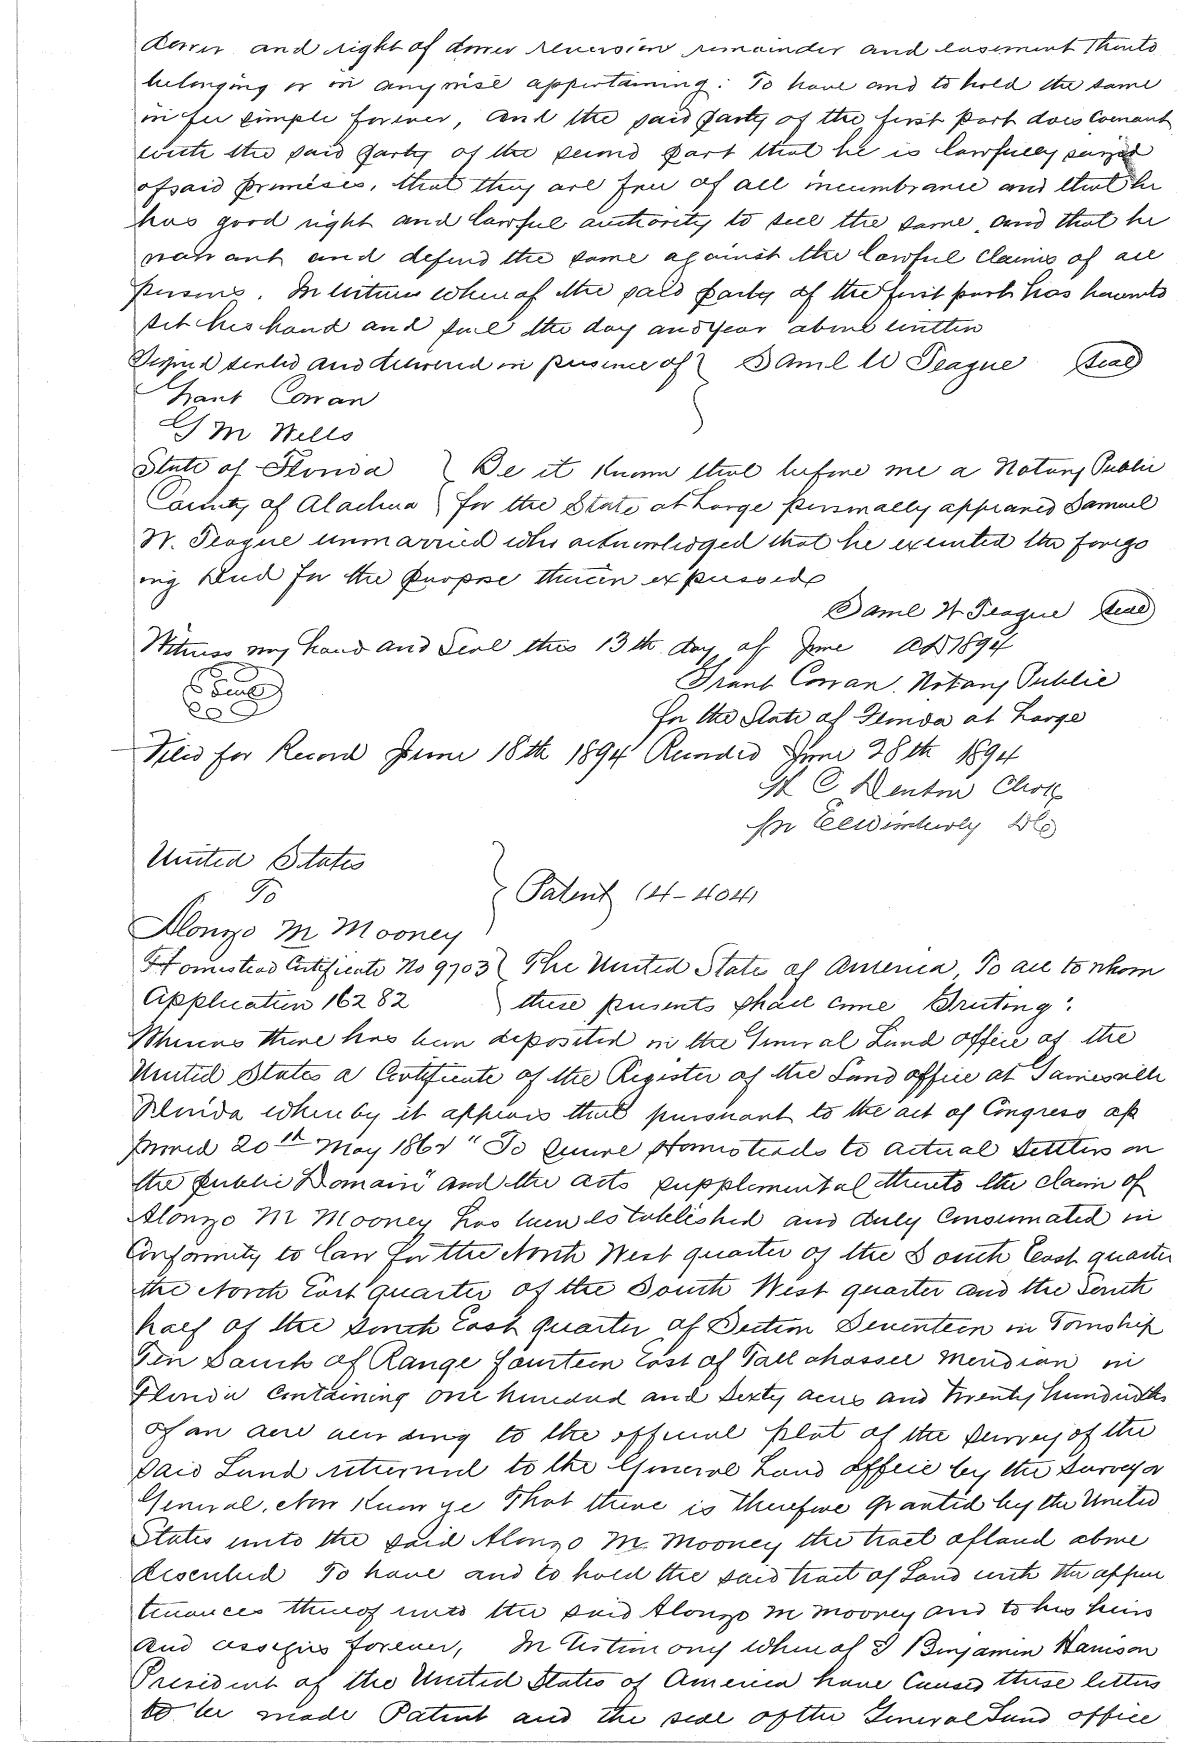 dower and right of dower reversion remainder and easement thereto
belonging or in anywise appertaining: To have and to hold the same
in fee simple forever, and the said party of the first part does covenant
with the said party of the second part that he is lawfully seized
of said premises, that they are free of all incumbrance and that he
has good right and lawful authority to sell the same, and that he
warrant and defend the same against the lawful claims of all
persons. In witness whereof the said party of the first part has hereunto
set his hand and seal the day and year above written
Signed sealed and delivered in presence of } Saml W Teague (Seal)
Grant Cowan
G M Wells
State of Florida } Be it known that before me a Notary Public
County of Alachua } for the State at Large personally appeared Samuel
W. Teague unmarried who acknowledged that he executed the forego
ing Deed for the purpose therein expressed
Saml W Teague (Seal)
Witness my hand and Seal this 13th day of June AD 1894
(Seal) Grant Cowan, Notary Public
for the State of Florida at Large
Filed for Record June 18th 1894 Recorded June 28th 1894
H C Denton Clerk
Per E C Wimberly DC
United States
To } Patent (4-404)
Alonzo M Mooney
Homestead Certificate No 9703 } The United States of America, To all to whom
Application 16282 } these presents shall come Greeting:
Whereas there has been deposited in the General Land office of the
United States a Certificate of the Register of the Land office at Gainesville
Florida whereby it appears that pursuant to the act of Congress ap
proved 20th May 1862 "To secure Homesteads to actual Settlers on
the public Domain" and the acts supplemental thereto the claim of
Alonzo M Mooney has been established and duly Consumated in
Conformity to law for the North West quarter of the South East quarter
the North East quarter of the South West quarter and the South
half of the South East quarter of Section Seventeen in Township
Ten South of Range fourteen East of Tallahassee Meridian in
Florida Containing one hundred and Sixty acres and twenty hundredths
of an acre according to the official plat of the Survey of the
said Land returned to the General Land office by the Surveyor
General, Now Know ye That there is therefore granted by the United
States unto the said Alonzo M. Mooney the tract of land above
described To have and to hold the said tract of Land with the appur
tenances thereof unto the said Alonzo M Mooney and to his heirs
and assigns forever, In testimony whereof I Benjamin Harrison
President of the United States of America have Caused these letters
to be made Patent and the seal of the General Land office